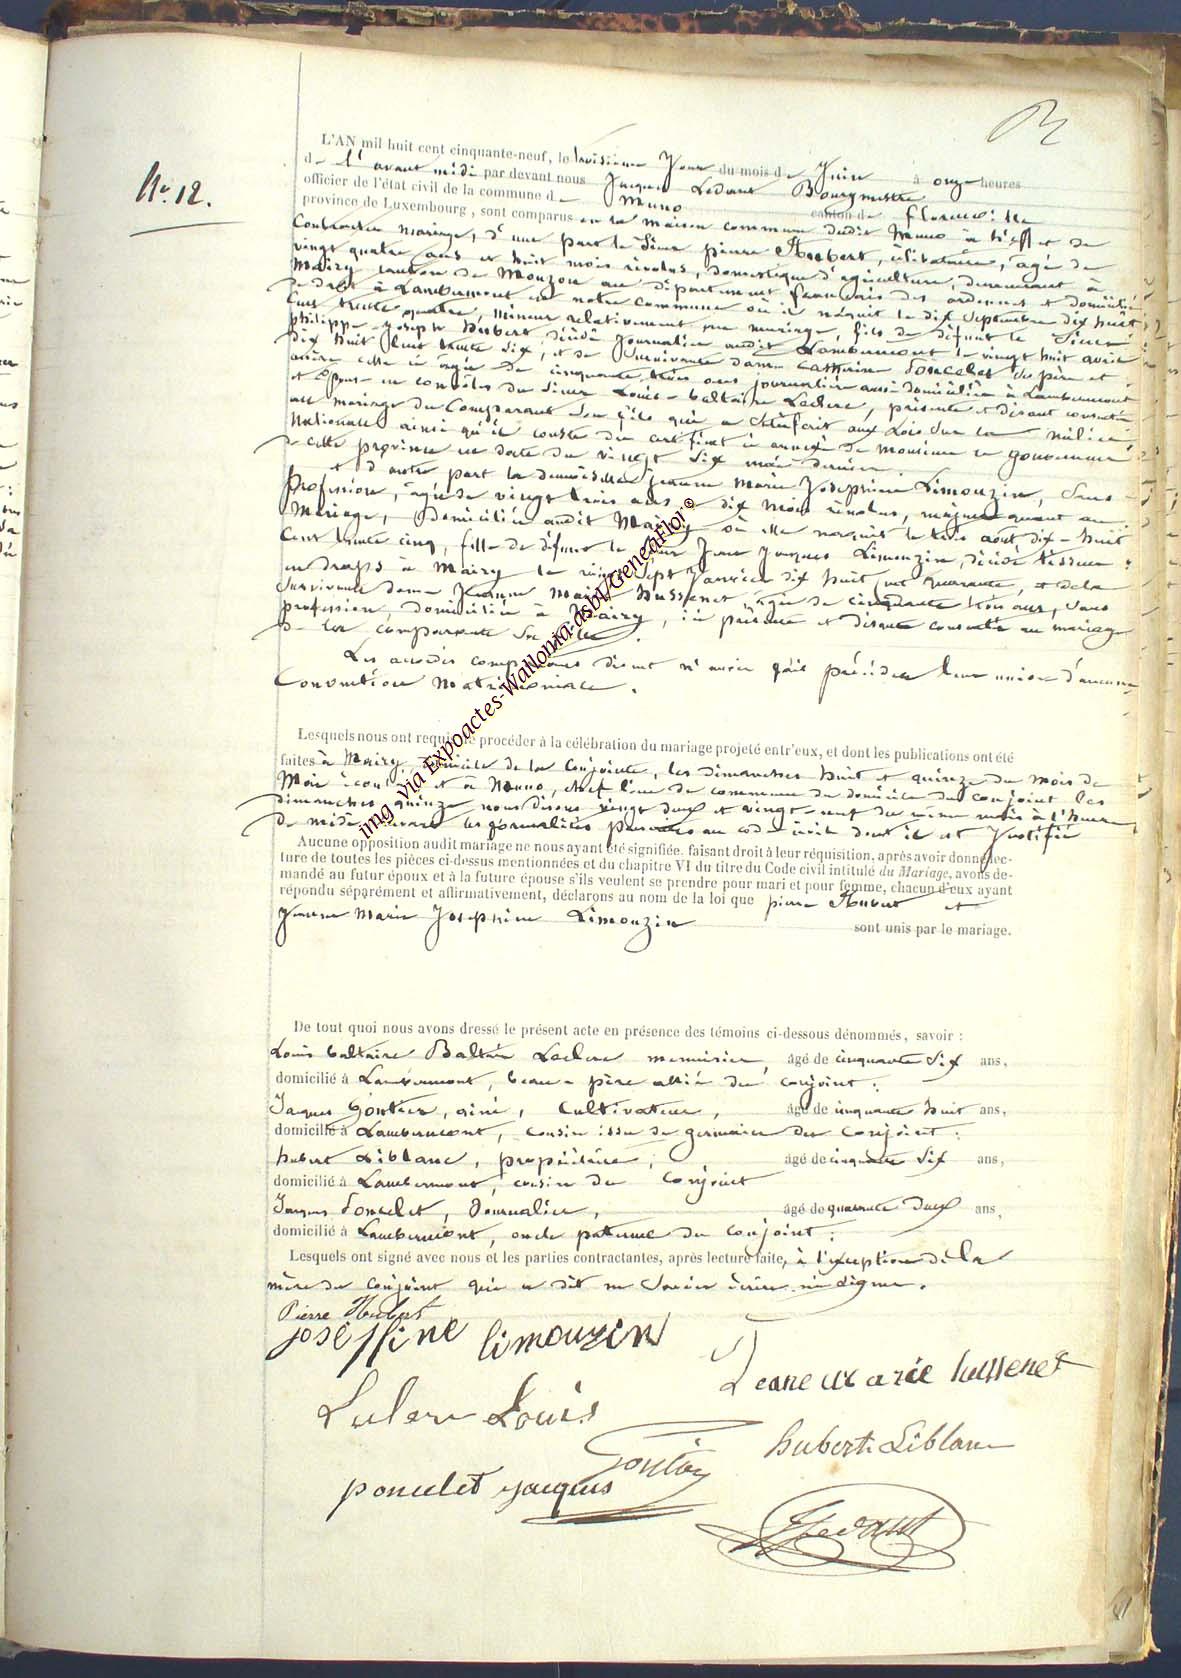 N° 12.
L'AN mil huit cent cinquante-neuf, le troisième Jour du mois de Juin à onze heures
de l'avant midi par devant nous Jacques Ledant Bourgmestre
officier de l'état civil de la commune de Muno canton de Florenville
province de Luxembourg, sont comparus en la maison commune dudit Muno à l'effet de
Contracter mariage, d'une part le Sieur pierre Hubert, célibataire, âgé de
vingt quatre ans et huit mois révolus, domestique d'agriculture, demeurant à
Mairy canton de Mouzon au département français des ardennes et domicilié
de droit à Lambermont en notre commune où il naquit le dix Septembre dix huit
Cent trente quatre, mineur relativement au mariage, fils de défunt le Sieur
philippe-Joseph Hubert décédé journalier audit Lambermont le vingt huit avril
dix huit Cent trente Six, et de Survivante dame Catherine Poncelet
âgée de cinquante trois ans journalière aussi domiciliée à Lambermont
et Epouse en convoles du Sieur Louis-baltaire Leclerc, présente et disant consentir
au mariage du Comparant Son fils qui a Satisfait aux Lois Sur la milice
Nationale ainsi qu'il conste du certificat ci annexé de monsieur le gouverneur
de cette province en date du vingt Six mai dernier.
et d'autre part la demoiselle jeanne Marie Josephine Limouzin, Sans
profession, âgée de vingt trois ans et dix mois révolus, majeure quant au
Mariage, domiciliée audit Mairy où elle naquit le trois août dix-huit
Cent trente cinq, fille de défunt le Sieur Jean Jacques Limouzin, décédé tisseur
en draps à Mairy le vingt Sept Janvier dix huit cent quarante, et de la
Survivante dame Jeanne Marie Hussenet âgée de cinquante trois ans, Sans
profession, domiciliée à Mairy, ici présente et disant consentir au mariage
de la comparante Sa fille.
Les accordés comparants disent n'avoir fait précéder leur union d'aucune
Convention Matrimoniale.
Lesquels nous ont requis de procéder à la célébration du mariage projeté entr'eux, et dont les publications ont été
faites à Mairy, domicile de la Conjointe, les dimanches huit et quinze du mois de
Mai et à Muno, chef lieu de commune du domicile du conjoint les
dimanches quinze nous disons vingt deux et vingt-neuf du même mois à l'heure
de midi suivant les formalités prescrites au code civil dont il est Justifié
Aucune opposition audit mariage ne nous ayant été signifiée, faisant droit à leur réquisition, après avoir donné lec-
ture de toutes les pièces ci-dessus mentionnées et du chapitre VI du titre du Code civil intitulé du Mariage, avons de-
mandé au futur époux et à la future épouse s'ils veulent se prendre pour mari et pour femme, chacun d'eux ayant
répondu séparément et affirmativement, déclarons au nom de la loi que pierre Hubert et
Jeanne Marie Josephine Limouzin sont unis par le mariage.
De tout quoi nous avons dressé le présent acte en présence des témoins ci-dessous dénommés, savoir :
Louis baltaire Leclerc menuisier, âgé de cinquante Six ans,
domicilié à Lambermont, beau-père allié du conjoint ;
Jacques Gontier, ainé, Cultivateur, âgé de cinquante huit ans,
domicilié à Lambermont, cousin issu de germain du Conjoint ;
hubert Liblanc, propriétaire, âgé de cinquante Six ans,
domicilié à Lambermont, cousin du Conjoint
Jacques Poncelet, Journalier, âgé de quarante deux ans,
domicilié à Lambermont, oncle paternel du conjoint ;
Lesquels ont signé avec nous et les parties contractantes, après lecture faite, à l'exception de la
mère du conjoint qui a dit ne Savoir écrire ni Signer.
Pierre Hubert
joseffine limouzin
Jeane marie hussenet
Leclerc Louis
Gontier
hubert Liblanc
poncelet jacques
J Ledant
img via Expoactes-Wallonia-asbl/GeneaFlor ©